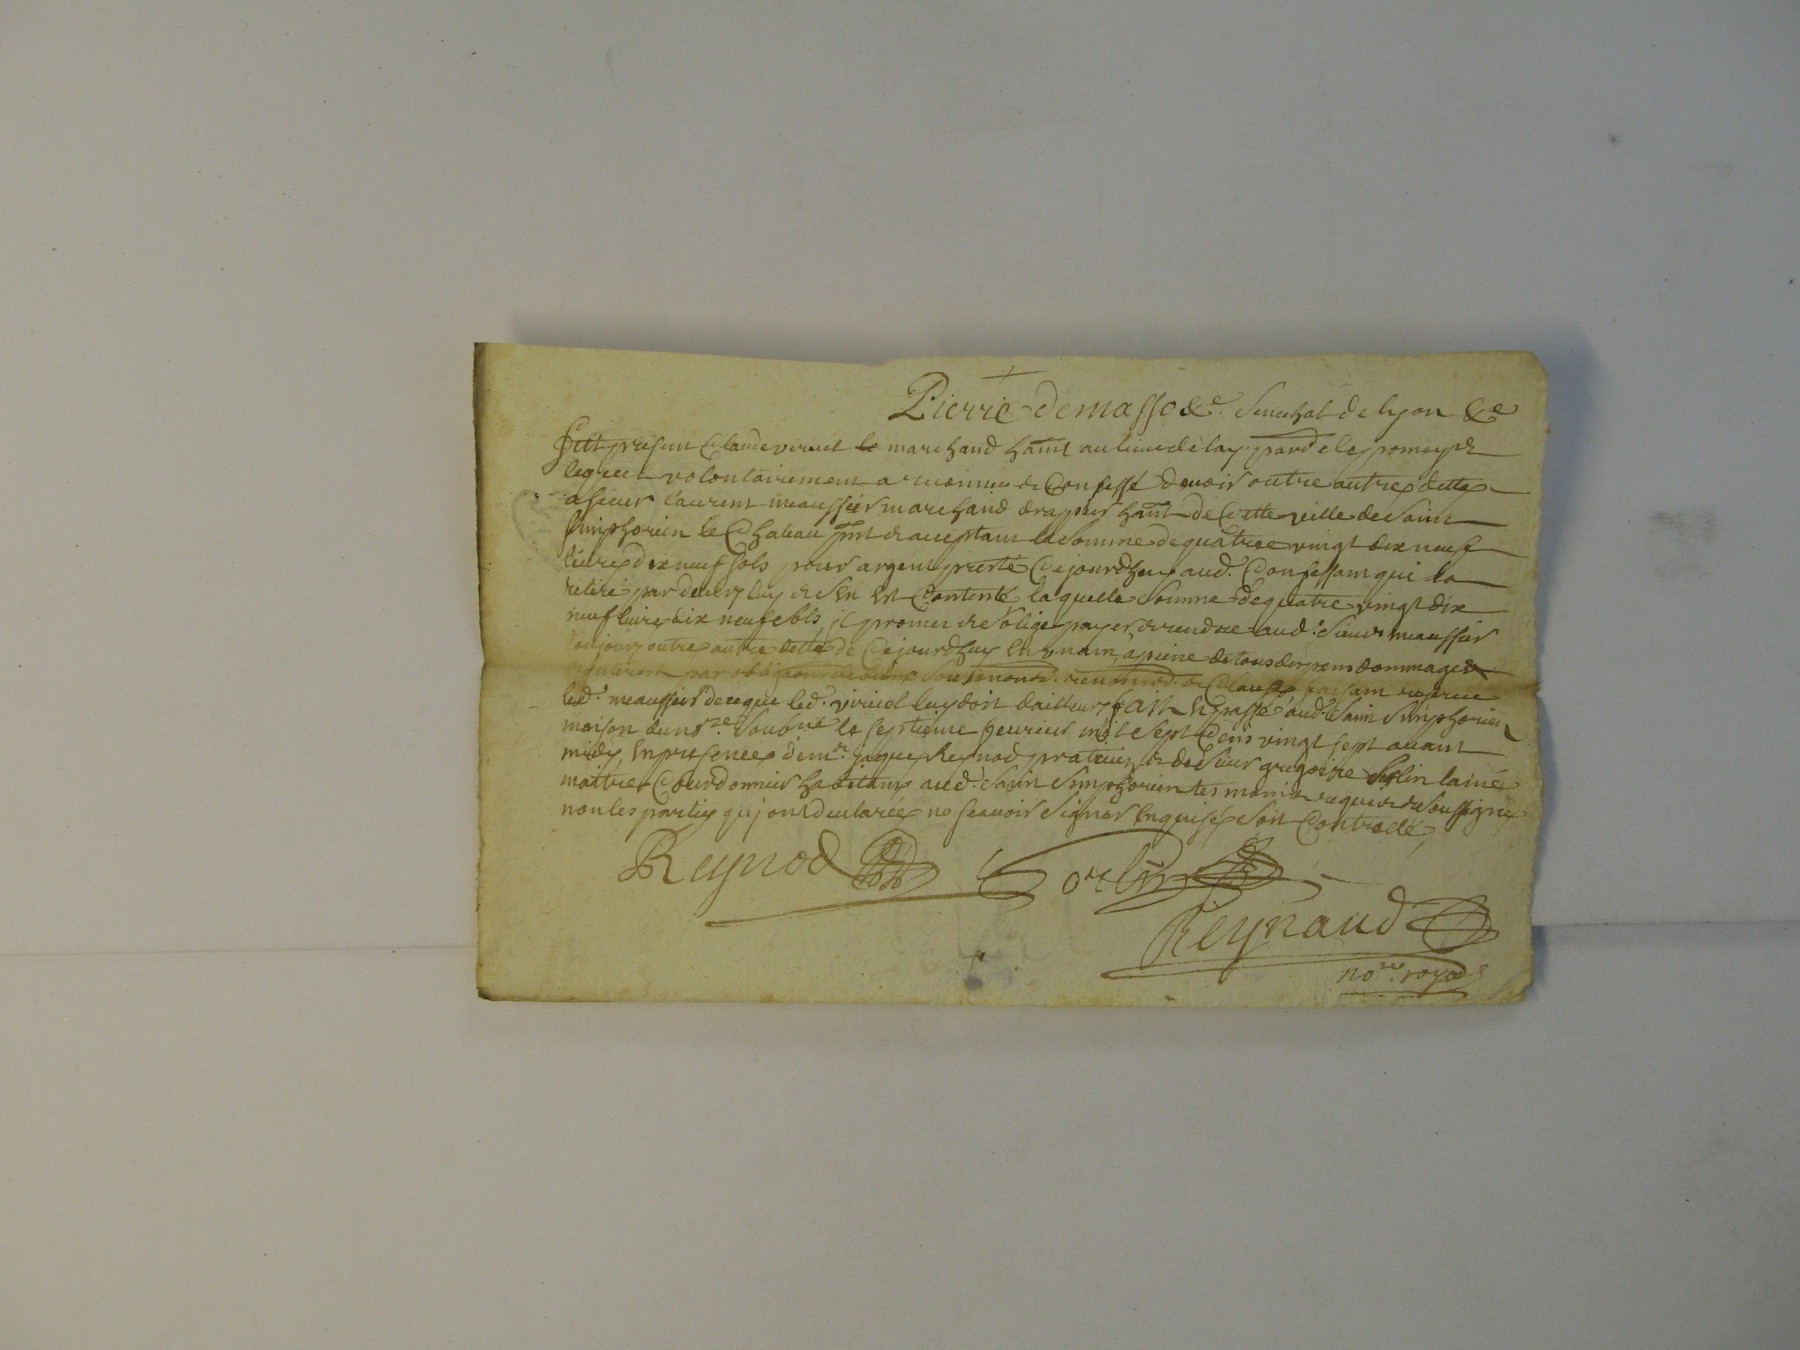 Pierre Demasso &c. Senechal de lyon &c
fut present Claude viricel le marchand habt au lieu de lay pard
lequel volontairement a reconneu & Confessé devoir outre autres dettes
a sieur laurent meaussier marchand drapier habt de Cette ville de Saint
Simphorien le Chateau pnt & acceptant la Somme de quatre vingt dix neuf
livres dix neuf sols pour argent presté Cejourdhuy aud. Confessant qui la
retiré par devers luy & S'en est Contenté laquelle Somme de quatre vingt dix
neuf livres dix neuf sols il promet & s'oblige payer & rendre aud. Sieur meaussier
toujours outre autre dette de Cejourdhuy En un an, a peine de tous despens dommages
par obligation de Soumis. renonciaon. & Clauses faisant reserve
led. meaussier de ce que led. viricel luy doit d'ailleurs, fait & passé aud. Saint Simphorien
maison du nore. Soubne. le septieme fevrier mil Sept Cens vingt sept avant
midy, En presence de mr. jaques Reynod praticien & de Sieur gregoire laine
maitre Courdonnier habitans aud. Saint Simphorien tesmoins requis & Soussignés
non les parties qui ont declarées ne scavoir Signer Enquises Soit Controllé,
Reynod Gorlin
Reynaud
nore. royal